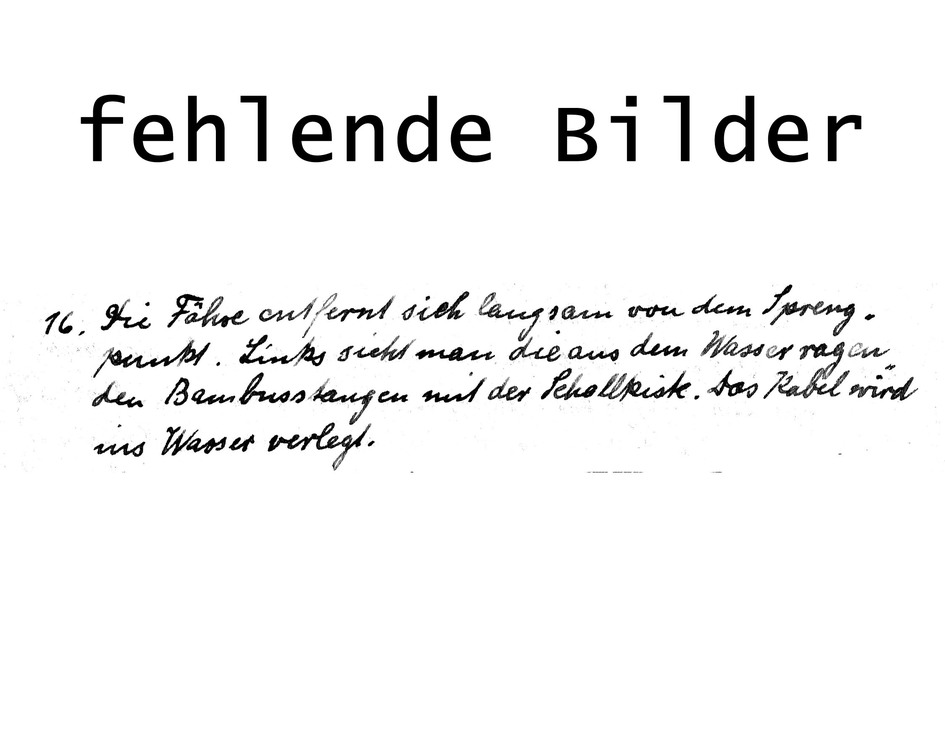 fehlende Bilder
16. Die Fähre entfernt sich langsam von dem Spreng-
punkt. Links sieht man die aus dem Wasser ragen
den Bambusstangen mit der Schallkiste. Das Kabel wird
ins Wasser verlegt.